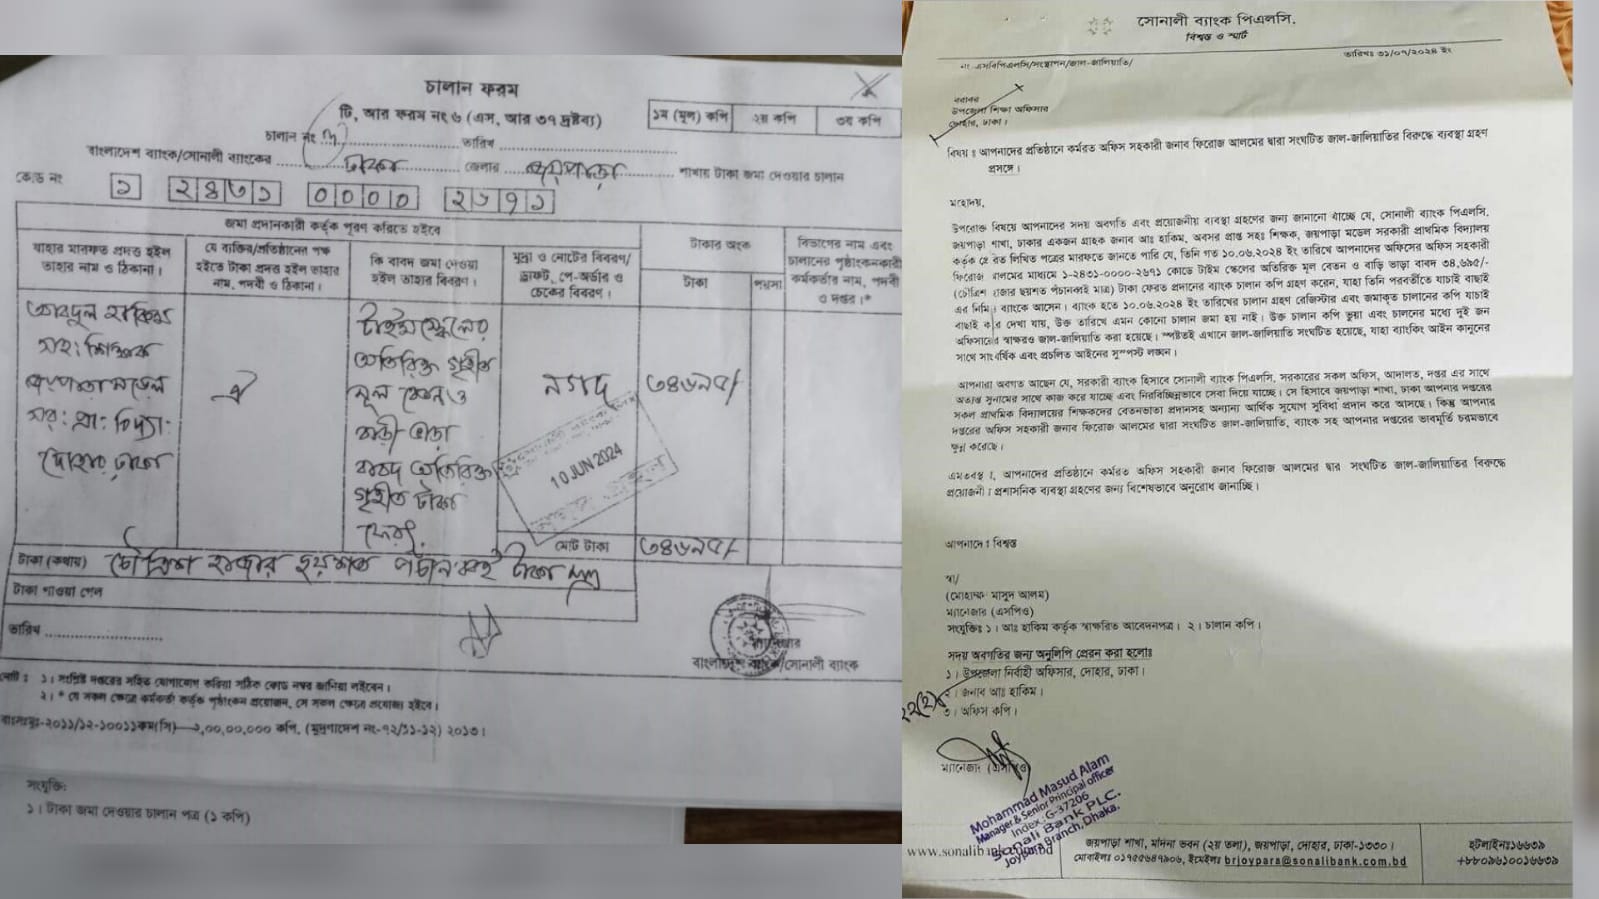 চালান ফরম
টি, আর ফরম নং ৬ (এস, আর ৩৭ দ্রষ্টব্য)
১ম (মূল) কপি
২য় কপি
৩য় কপি
চালান নং
তারিখ
বাংলাদেশ ব্যাংক/সোনালী ব্যাংকের ঢাকা জেলার জয়পাড়া শাখায় টাকা জমা দেওয়ার চালান
কোড নং ১ ২৪৩১ ০০০০ ২৬৭১
জমা প্রদানকারী কর্তৃক পূরণ করিতে হইবে
যাহার মারফত প্রদত্ত হইল তাহার নাম ও ঠিকানা।
যে ব্যক্তির/প্রতিষ্ঠানের পক্ষ হইতে টাকা প্রদত্ত হইল তাহার নাম, পদবী ও ঠিকানা।
কি বাবদ জমা দেওয়া হইল তাহার বিবরণ।
মুদ্রা ও নোটের বিবরণ/ ড্রাফট, পে-অর্ডার ও চেকের বিবরণ।
টাকার অংক
টাকা
পয়সা
বিভাগের নাম এবং চালানের পৃষ্ঠাংকনকারী কর্মকর্তার নাম, পদবী ও দপ্তর।*
আবদুল হাকিম
সহঃ শিক্ষক
জয়পাড়া মডেল
সরঃ প্রাঃ বিদ্যাঃ
দোহার, ঢাকা
ঐ
টাইমস্কেলের
অতিরিক্ত গৃহীত
মূল বেতন ও
বাড়ী ভাড়া
বাবদ অতিরিক্ত
গৃহীত টাকা
ফেরৎ
নগদ
৩৪৬৯৫/-
10 JUN 2024
মোট টাকা
৩৪৬৯৫/-
টাকা (কথায়) চৌত্রিশ হাজার ছয়শত পঁচানব্বই টাকা মাত্র
টাকা পাওয়া গেল
তারিখ
বাংলাদেশ ব্যাংক/সোনালী ব্যাংক
নোট : ১। সংশ্লিষ্ট দপ্তরের সহিত যোগাযোগ করিয়া সঠিক কোড নম্বর জানিয়া লইবেন।
২। * যে সকল ক্ষেত্রে কর্মকর্তা কর্তৃক পৃষ্ঠাংকন প্রয়োজন, সে সকল ক্ষেত্রে প্রযোজ্য হইবে।
বাঃসঃমুঃ-২০১১/১২-১০০১১কম(সি)—২,০০,০০,০০০ কপি, (মুদ্রণাদেশ নং-৭২/১১-১২) ২০১৩।
সংযুক্তি:
১। টাকা জমা দেওয়ার চালান পত্র (১ কপি)
সোনালী ব্যাংক পিএলসি.
বিশ্বস্ত ও স্মার্ট
নং এসবিপিএলসি/সংস্থাপন/জাল-জালিয়াতি/
তারিখঃ ৩১/০৭/২০২৪ ইং
বরাবর
উপজেলা শিক্ষা অফিসার
দোহার, ঢাকা।
বিষয় ঃ আপনাদের প্রতিষ্ঠানে কর্মরত অফিস সহকারী জনাব ফিরোজ আলমের দ্বারা সংঘটিত জাল-জালিয়াতির বিরুদ্ধে ব্যবস্থা গ্রহণ
প্রসঙ্গে।
মহোদয়,
উপরোক্ত বিষয়ে আপনাদের সদয় অবগতি এবং প্রয়োজনীয় ব্যবস্থা গ্রহণের জন্য জানানো যাচ্ছে যে, সোনালী ব্যাংক পিএলসি.
জয়পাড়া শাখা, ঢাকার একজন গ্রাহক জনাব আঃ হাকিম, অবসর প্রাপ্ত সহঃ শিক্ষক, জয়পাড়া মডেল সরকারী প্রাথমিক বিদ্যালয়
কর্তৃক প্রেরিত লিখিত পত্রের মারফতে জানতে পারি যে, তিনি গত ১০.০৬.২০২৪ ইং তারিখে আপনাদের অফিসের অফিস সহকারী
ফিরোজ আলমের মাধ্যমে ১-২৪৩১-০০০০-২৬৭১ কোডে টাইম স্কেলের অতিরিক্ত মূল বেতন ও বাড়ি ভাড়া বাবদ ৩৪,৬৯৫/-
(চৌত্রিশ হাজার ছয়শত পঁচানব্বই মাত্র) টাকা ফেরত প্রদানের ব্যাংক চালান কপি গ্রহণ করেন, যাহা তিনি পরবর্তীতে যাচাই বাছাই
এর নিমিত্ত ব্যাংকে আসেন। ব্যাংক হতে ১০.০৬.২০২৪ ইং তারিখের চালান গ্রহণ রেজিস্টার এবং জমাকৃত চালানের কপি যাচাই
বাছাই করে দেখা যায়, উক্ত তারিখে এমন কোনো চালান জমা হয় নাই। উক্ত চালান কপি ভুয়া এবং চালনের মধ্যে দুই জন
অফিসারের স্বাক্ষরও জাল-জালিয়াতি করা হয়েছে। স্পষ্টতই এখানে জাল-জালিয়াতি সংঘটিত হয়েছে, যাহা ব্যাংকিং আইন কানুনের
সাথে সাংঘর্ষিক এবং প্রচলিত আইনের সুস্পস্ট লঙ্ঘন।
আপনারা অবগত আছেন যে, সরকারী ব্যাংক হিসাবে সোনালী ব্যাংক পিএলসি. সরকারের সকল অফিস, আদালত, দপ্তর এর সাথে
অত্যন্ত সুনামের সাথে কাজ করে যাচ্ছে এবং নিরবিচ্ছিন্নভাবে সেবা দিয়ে যাচ্ছে। সে হিসাবে জয়পাড়া শাখা, ঢাকা আপনার দপ্তরের
সকল প্রাথমিক বিদ্যালয়ের শিক্ষকদের বেতনভাতা প্রদানসহ অন্যান্য আর্থিক সুযোগ সুবিধা প্রদান করে আসছে। কিন্তু আপনার
দপ্তরের অফিস সহকারী জনাব ফিরোজ আলমের দ্বারা সংঘটিত জাল-জালিয়াতি, ব্যাংক সহ আপনার দপ্তরের ভাবমূর্তি চরমভাবে
ক্ষুন্ন করেছে।
এমতবস্থায়, আপনাদের প্রতিষ্ঠানে কর্মরত অফিস সহকারী জনাব ফিরোজ আলমের দ্বারা সংঘটিত জাল-জালিয়াতির বিরুদ্ধে
প্রয়োজনীয় প্রশাসনিক ব্যবস্থা গ্রহণের জন্য বিশেষভাবে অনুরোধ জানাচ্ছি।
আপনাদের বিশ্বস্ত
স্বা/
(মোহাম্মদ মাসুদ আলম)
ম্যানেজার (এসপিও)
সংযুক্তিঃ ১। আঃ হাকিম কর্তৃক স্বাক্ষরিত আবেদনপত্র। ২। চালান কপি।
সদয় অবগতির জন্য অনুলিপি প্রেরন করা হলোঃ
১। উপজেলা নির্বাহী অফিসার, দোহার, ঢাকা।
২। জনাব আঃ হাকিম।
৩। অফিস কপি।
ম্যানেজার (এসপিও)
Mohammad Masud Alam
Manager & Senior Principal officer
Index: G-37206
Sonali Bank PLC.
Joypara Branch, Dhaka.
www.sonalibank
জয়পাড়া শাখা, মদিনা ভবন (২য় তলা), জয়পাড়া, দোহার, ঢাকা-১৩৩০।
মোবাইলঃ ০১৭৫৫৬৪৭৯০৬, ইমেইলঃ brjoypara@sonalibank.com.bd
হটলাইনঃ১৬৬৩৯
+৮৮০৯৬১০০১৬৬৩৯